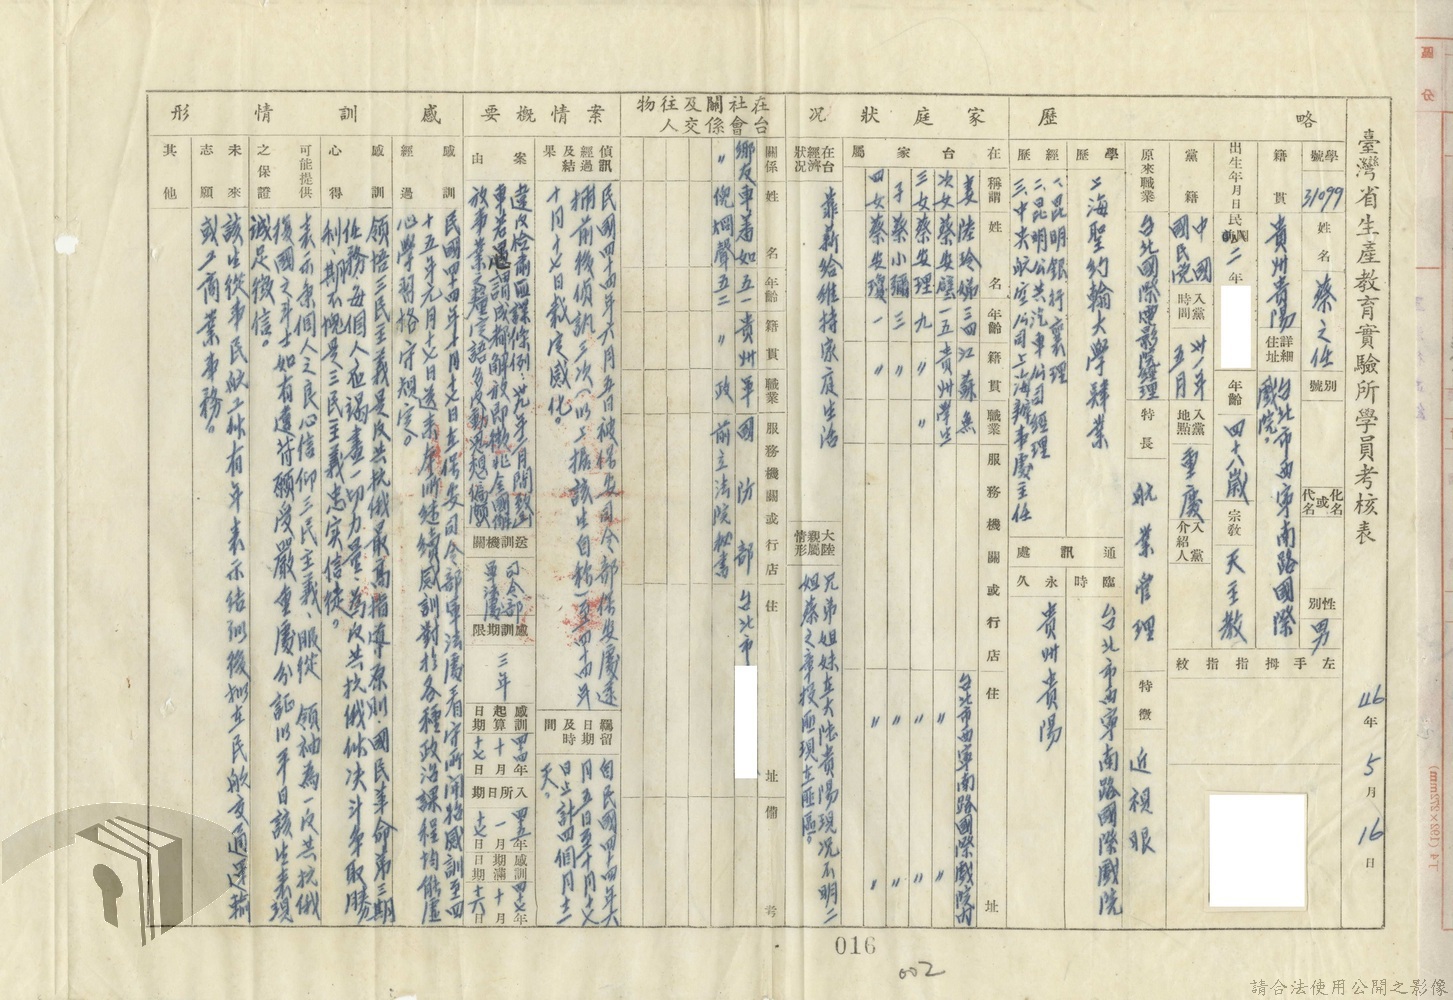 臺灣省生產教育實驗所學員考核表
46年5月16日
略歷
學號 31099
姓名 蔡之任
別號
化名或代名
性別 男
籍貫 貴州貴陽
詳細住址 台北市西寧南路國際戲院。
左手拇指指紋
出生年月日 民國前二年
年齡 四十八歲
宗教 天主教
黨籍 中國國民黨
入黨時間 卅一年五月
入黨地點 重慶
入黨介紹人
原來職業 台北國際電影院經理
特長 航業管理
特徵 近視眼
學歷 上海聖約翰大學肄業
經歷 一、昆明銀行襄理
二、昆明公共汽車公司經理
三、中央航空公司上海辦事處主任
通訊處
臨時 台北市西寧南路國際戲院
永久 貴州貴陽
家庭狀況
在台家屬
稱謂 姓名 年齡 籍貫 職業 服務機關或行店 住址
妻 陸玲娣 三四 江蘇 無 台北市西寧南路國際戲院內
次女 蔡安 一五 貴州 學生 〃 〃
三女 蔡安理 九 〃 〃 〃
子 蔡小彌 三 〃 〃 〃
四女 蔡安瓊 一 〃 〃 〃
在台經濟狀況 靠薪給維持家庭生活
大陸親屬情形 兄弟姐妹在大陸貴陽現況不明二
姐蔡之章投匪現在匪區。
在台社會關係及交往人物
關係 姓名 年齡 籍貫 職業 服務機關或行店 住址 備考
鄉友 車蕃如 五一 貴州平 國防部 台北市
〃 倪炯聲 五二 〃 政 前立法院秘書
案情概要
偵訊經過及結果 民國四十四年六月五日被保安司令部保安處逮
捕前後偵訊三次(以上據該生自稱)至四十四年
十月十七日裁定感化。
羈留日期及時間 自民國四十四年六
月五日至十月十七
日止計四個月十二
天。
案由 違反檢肅匪諜條例:卅九年二月間致函
車若愚謂成都解放即撤兆全國解
放事業之種言語多反動思想偏激
送訓機關 司令部軍法處
感訓期限 三年
感訓起算日期 四四年十月十七日
入所日期 四五年一月十七日
感訓期滿日期 四七年十月十六日
感訓情形
感訓經過 民國四十四年十月十七日在保安司令部軍法處看守所開始感訓至四
十五年元月十七日送來本所繼續感訓對於各種政治課程均能虛
心學習恪守規定。
感訓心得 領悟三民主義是反共抗俄最高指導原則,國民革命第三期
任務,每個人應竭盡一切力量,為反共抗俄作決斗爭取勝
利,期不愧是三民主義忠實信徒。
可能提供之保證 表示依個人之良心信仰三民主義、服從 領袖為一反共抗俄
復國之斗士如有違背願受嚴重處分証以平日該生表現
誠足徵信。
未來志願 該生從事民航工作有年表示結訓後擬在民航交通運輸
或工商業事務。
其他
016
002
請合法使用公開之影像